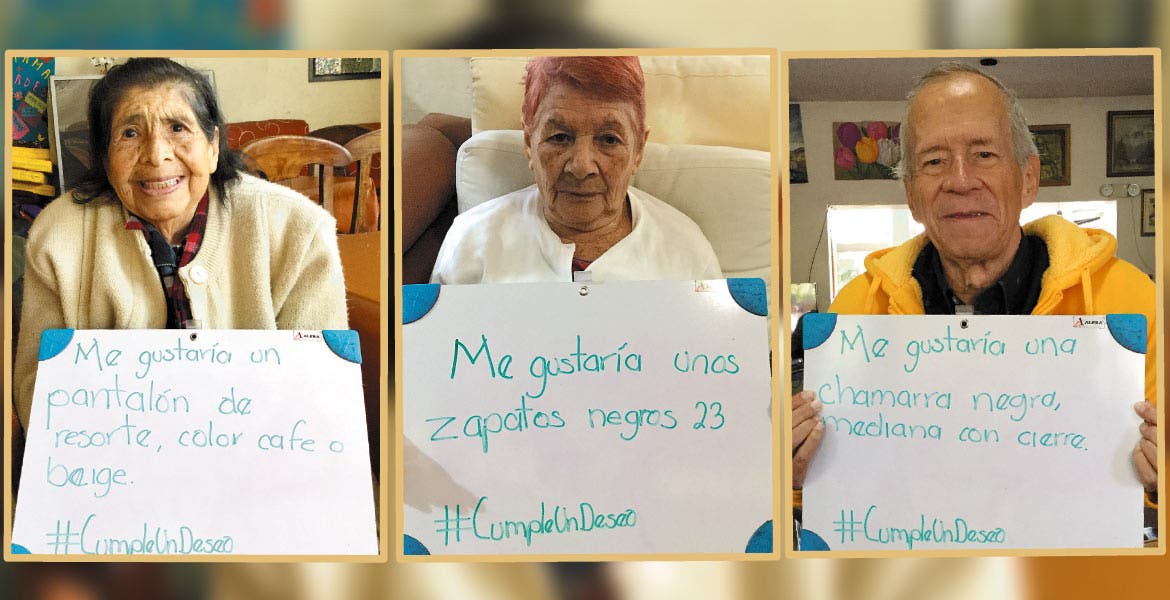 Me gustaría un
pantalón de
resorte, color cafe o
beige.
#CumpleUnDeseo
Me gustaría unos
zapatos negros 23
#CumpleUnDeseo
ALFRA
Me gustaría una
chamarra negra,
mediana con cierre.
#CumpleUnDeseo